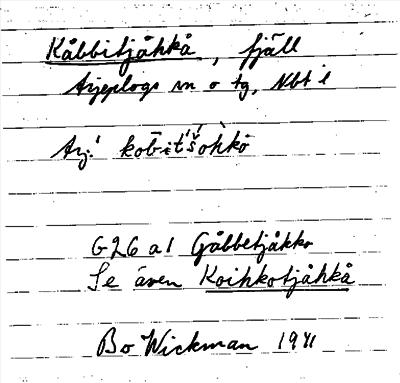 Kåbbitjåhkå, fjäll
Arjeplogs sn o tg, Nbt l
Arj.
G26 a 1 Gåbbetjåkko
Se även Koihkotjåhkå
Bo Wickman 1941